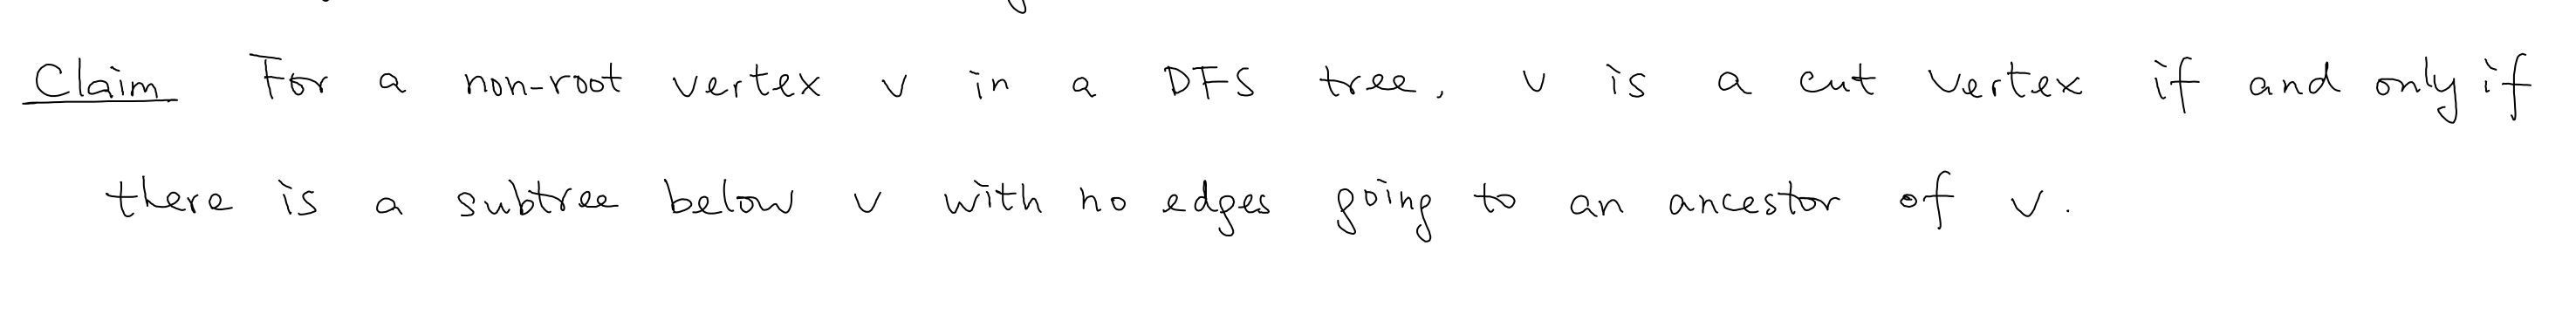 Claim For a non-root vertex v in a DFS tree, v is a cut vertex if and only if
there is a subtree below v with no edges going to an ancestor of v.